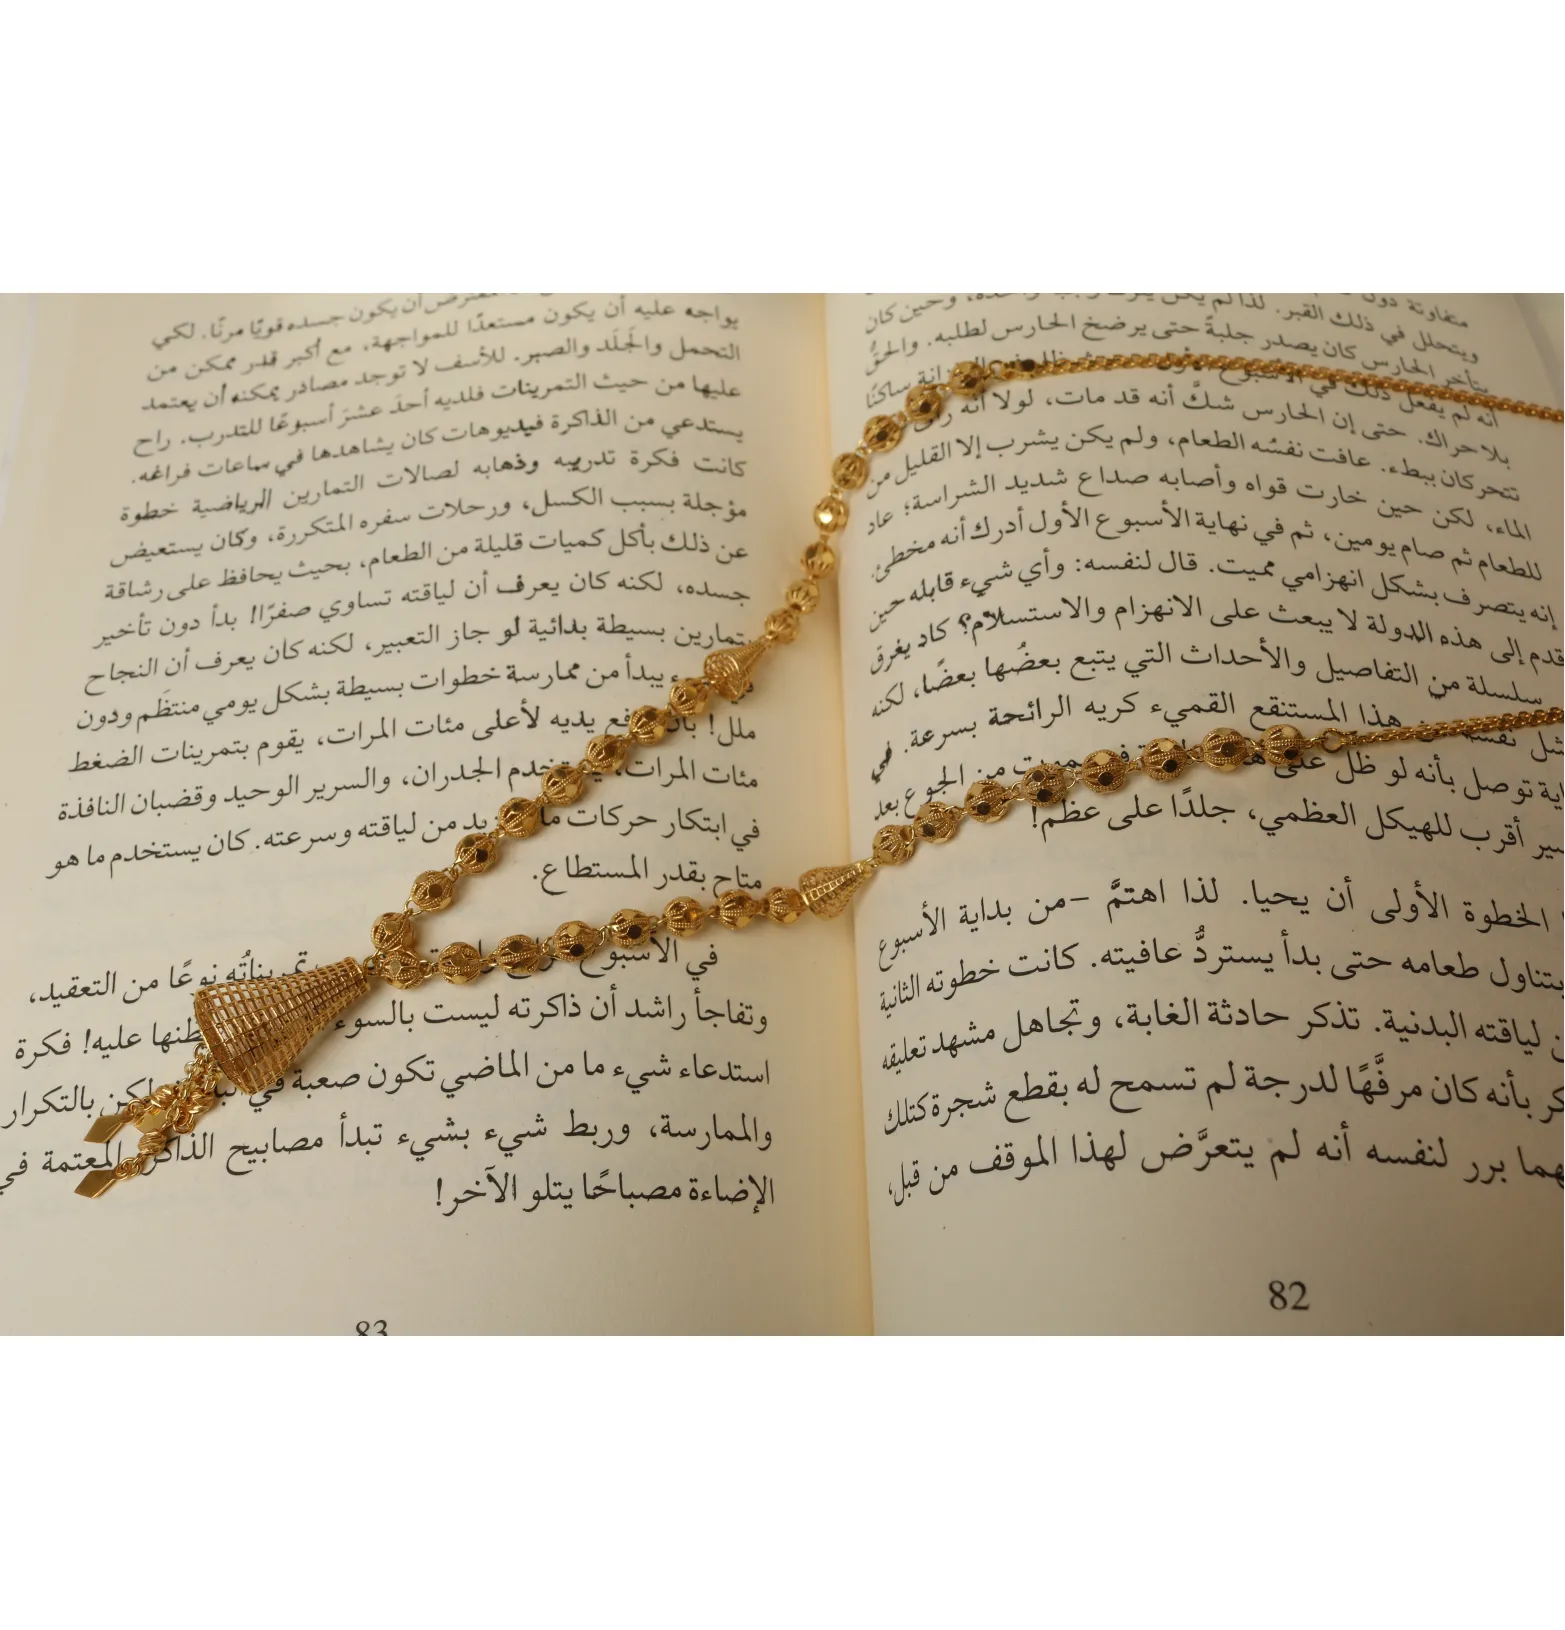 متفاوتة دون
ويتحلل في ذلك القبر. لذا لم يكن وحين كان
يتأخر الحارس كان يصدر جلبةً حتى يرضخ الحارس لطلبه. والحقُّ
أنه لم يفعل ذلك في الأسبوع الأول ساكنًا
بلا حراك. حتى إن الحارس شكَّ أنه قد مات، لولا أنه
تتحركان ببطء. عافت نفسُه الطعام، ولم يكن يشرب إلا القليل من
الماء، لكن حين خارت قواه وأصابه صداع شديد الشراسة؛ عاد
للطعام ثم صام يومين، ثم في نهاية الأسبوع الأول أدرك أنه مخطئ.
إنه يتصرف بشكل انهزامي مميت. قال لنفسه: وأي شيء قابله حين
قدم إلى هذه الدولة لا يبعث على الانهزام والاستسلام؟ كاد يغرق
سلسلة من التفاصيل والأحداث التي يتبع بعضُها بعضًا، لكنه
نفسه هذا المستنقع القميء كريه الرائحة بسرعة. في
توصل بأنه لو ظل على من الجوع بعد
أقرب للهيكل العظمي، جلدًا على عظم!
الخطوة الأولى أن يحيا. لذا اهتمَّ -من بداية الأسبوع
بتناول طعامه حتى بدأ يستردُّ عافيته. كانت خطوته الثانية
لياقته البدنية. تذكر حادثة الغابة، وتجاهل مشهد تعليقه
بأنه كان مرفَّهًا لدرجة لم تسمح له بقطع شجرة كتلك
برر لنفسه أنه لم يتعرَّض لهذا الموقف من قبل،
82
أن يكون جسده قويًا مرنًا. لكي
يواجه عليه أن يكون مستعدًا للمواجهة، مع أكبر قدر ممكن من
التحمل والجَلَد والصبر. للأسف لا توجد مصادر يمكنه أن يعتمد
عليها من حيث التمرينات فلديه أحدَ عشرَ أسبوعًا للتدرب. راح
يستدعي من الذاكرة فيديوهات كان يشاهدها في ساعات فراغه.
كانت فكرة تدريبه وذهابه لصالات التمارين الرياضية خطوة
مؤجلة بسبب الكسل، ورحلات سفره المتكررة، وكان يستعيض
عن ذلك بأكل كميات قليلة من الطعام، بحيث يحافظ على رشاقة
جسده، لكنه كان يعرف أن لياقته تساوي صفرًا! بدأ دون تأخير
بتمارين بسيطة بدائية لو جاز التعبير، لكنه كان يعرف أن النجاح
يبدأ من ممارسة خطوات بسيطة بشكل يومي منتظَم ودون
ملل! يديه لأعلى مئات المرات، يقوم بتمرينات الضغط
مئات المرات، الجدران، والسرير الوحيد وقضبان النافذة
في ابتكار حركات من لياقته وسرعته. كان يستخدم ما هو
متاح بقدر المستطاع.
في الأسبوع تمريناتُه نوعًا من التعقيد،
وتفاجأ راشد أن ذاكرته ليست بالسوء عليه! فكرة
استدعاء شيء ما من الماضي تكون صعبة في لكن بالتكرار
والممارسة، وربط شيء بشيء تبدأ مصابيح الذاكرة المعتمة في
الإضاءة مصباحًا يتلو الآخر!
83